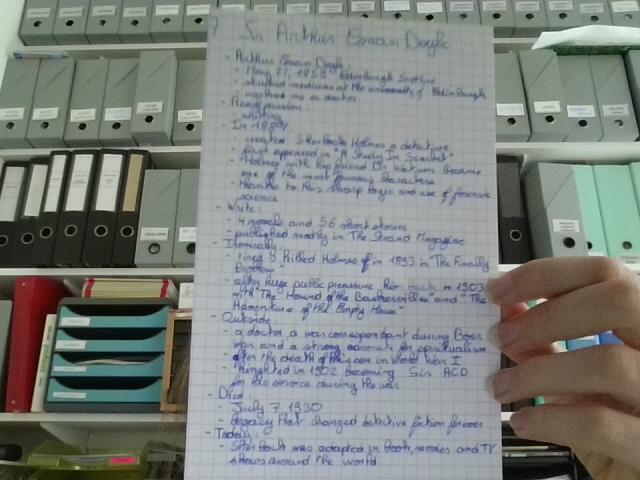 Sir Arthur Conan Doyle
- Arthur Conan Doyle:
- May 22, 1859 Edinburgh Scotland
- studied medicine at the university of Edinburgh
- worked as a doctor
- Real passion:
- writing
- In 1887:
- created Sherlock Holmes a detective
first appeared in "A Study In Scarlet"
- Holmes with his friend Dr. Watson became
one of the most famous characters
- thanks to his sharp logic and use of forensic
science
- Write:
- 4 novels and 56 short stories
published mostly in The Strand Magazine
- Ironically:
- tired & killed Holmes in 1893 in "The Finally
Problem"
- after huge public pressure him back in 1903
with "The Hound of the Baskervilles" and "The
Adventure of the Empty House"
- Outside:
- a doctor, a war correspondant during Boer
War and a strong advocate for spiritualism
after the death of his son in World War I
- knighted in 1902 becoming Sir ACD
for his service during the war
- Died:
- July 7, 1930
- legacy that changed detective fiction forever
- Today:
- Sherlock was adapted in book, movies and TV
shows around the world